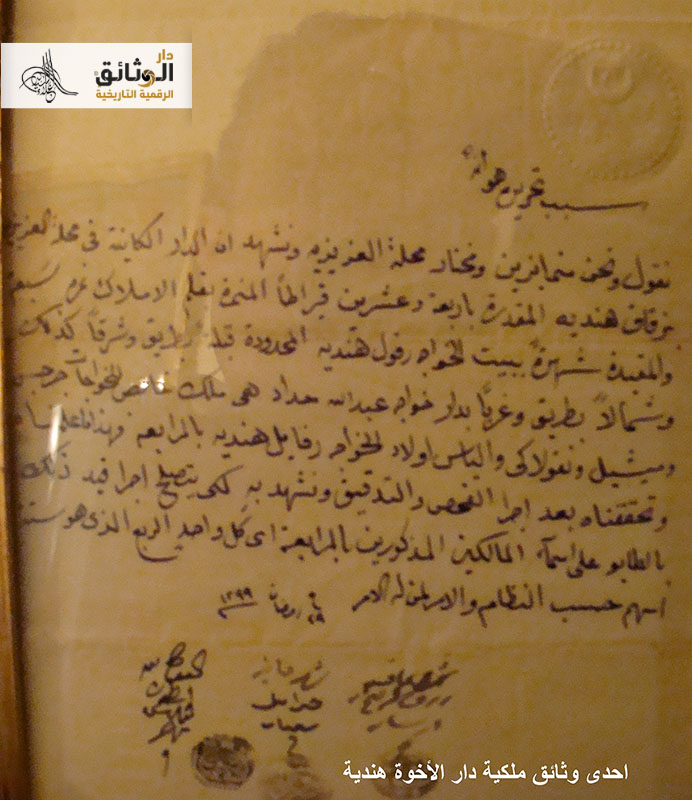 دار
الوثائق
الرقمية التاريخية
سبب تحريره هو انه
نقول ونحن متحايزين ومختار محلة العزيزيه ونشهد ان الدار الكاينة فى محلة العزيزيه
بزقاق هنديه المقدرة باربعة وعشرين قيراطاً المنمرة بقلم الاملاك نمره
والمقيدة شهرةً ببيت الخواجه رفول هنديه المحدودة قبلة بطريق وشرقاً كذلك
وشمالاً بطريق وغرباً بدار خواجه عبدالله حداد هى ملك خالص للخواجات جرجس
وميشيل ونقولاكى والياس اولاد الخواجه رفايل هنديه بالمرابعه وهذا ما علمناه
وتحققناه بعد اجرا الفحص والتدقيق ونشهد به لكى يتصلح اجرا قيد ذلك
بالطابو على اسمآء المالكين المذكورين بالمرابعة اى كل واحد الربع الذى هو ستة
اسهم حسب النظام والامر لمن له الامر ٢٩ ١٢٩٩
احدى وثائق ملكية دار الأخوة هندية